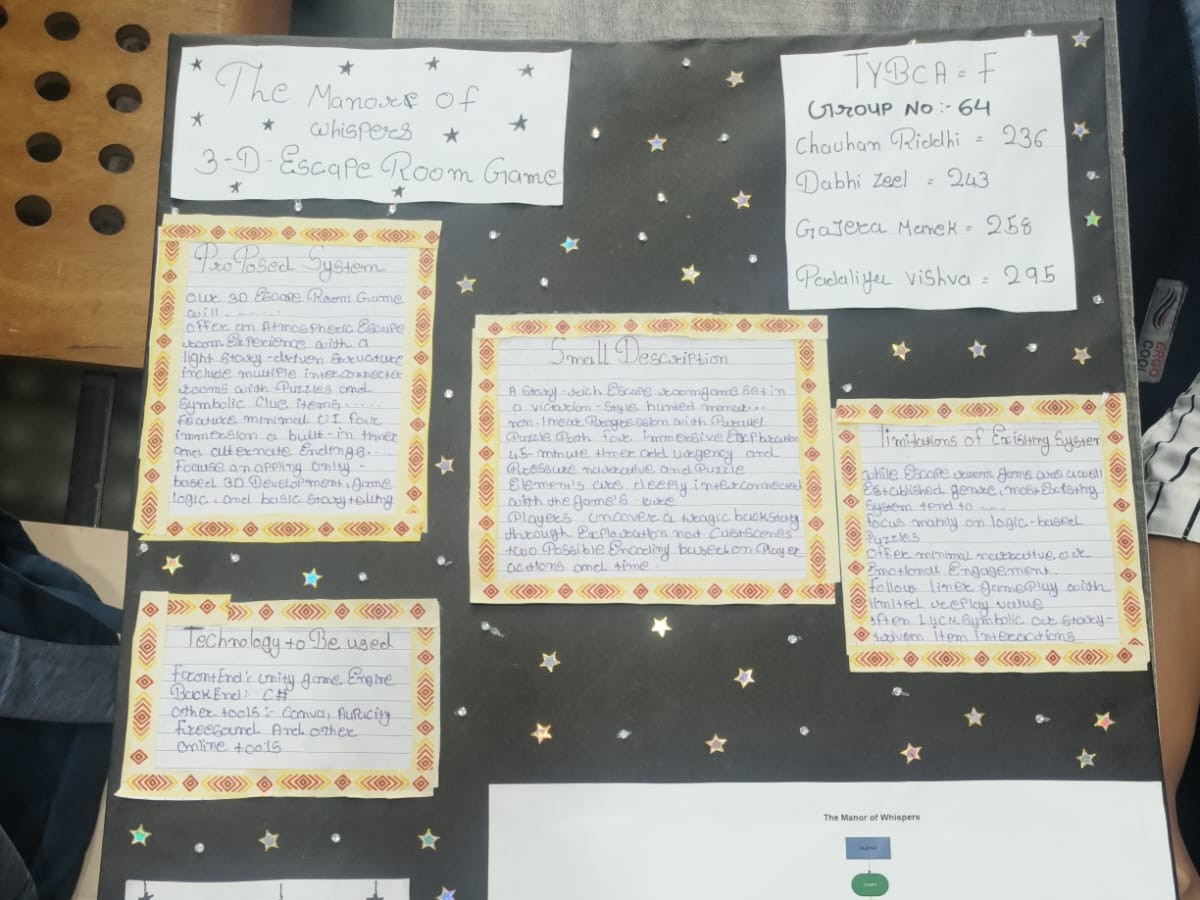 The Manors of
whispers
3-D-Escape Room Game
TYBCA = F
Group No :- 64
Chauhan Riddhi = 236
Dabhi Zeel = 243
Gajera Manek = 258
Padaliya Vishva = 295
Proposed System
our 3D Escape Room Game
will......
offer an Atmospheric Escape
room Experience with a
tight story-driven structure
include multiple interconnected
rooms with Puzzles and
Symbolic Clue items.....
feature minimal UI for
immersion a built-in timer
and alternate Endings....
Focuse an appling Unity-
based 3D Development, game
logic, and basic storytelling
Small Description
A Story-rich Escape roomgame set in
a victorion-Style hunted manor...
non-linear Progression with Parallel
Puzzle Path for immersive Exploration
45-minute timer add urgency and
Pressure narrative and Puzzle
Elements are deeply interconnected
with the game's lore
Players uncover a tragic backstory
through Exploration and Cutscenes
two Possible Encoding based on Player
actions and time.
limitations of Existing System
while Escape room gams are a well
Established genre, most Existing
System tend to ....
focus mainly on logic-based
Puzzles
Offer minimal narrative, or
Emotional Engagement.
follow liner gamePlay with
limited replay value
often Lack Symbolic or Story-
driven Item Interactions
Technology to Be used
FrontEnd : Unity game Engine
BackEnd : C#
other tools :- Canva, Audacity
freesound And other
online tools
The Manor of Whispers
START